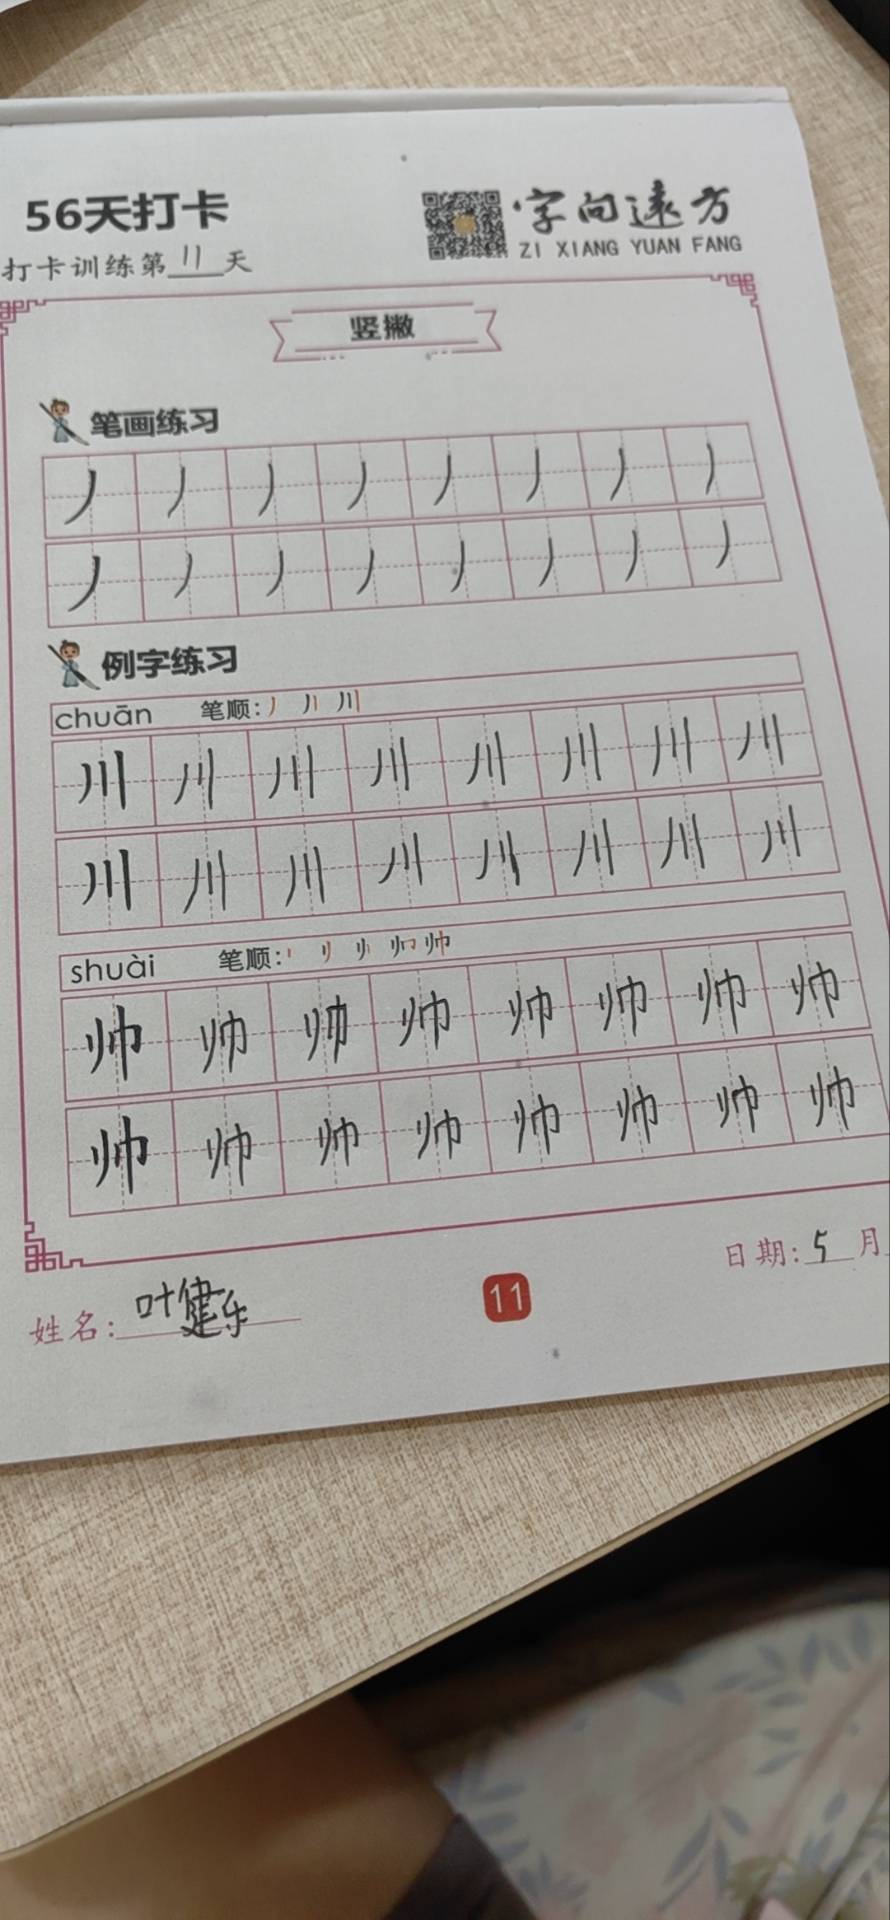 56天打卡
字向远方
ZI XIANG YUAN FANG
打卡训练第11天
竖撇
笔画练习
丿 丿 丿 丿 丿 丿 丿 丿
丿 丿 丿 丿 丿 丿 丿 丿
例字练习
chuān 笔顺: 丿 丿丨 川
川 川 川 川 川 川 川 川
川 川 川 川 川 川 川 川
shuài 笔顺: 帅
帅 帅 帅 帅 帅 帅 帅 帅
帅 帅 帅 帅 帅 帅 帅 帅
姓名: 叶健乐
11
日期: 5月